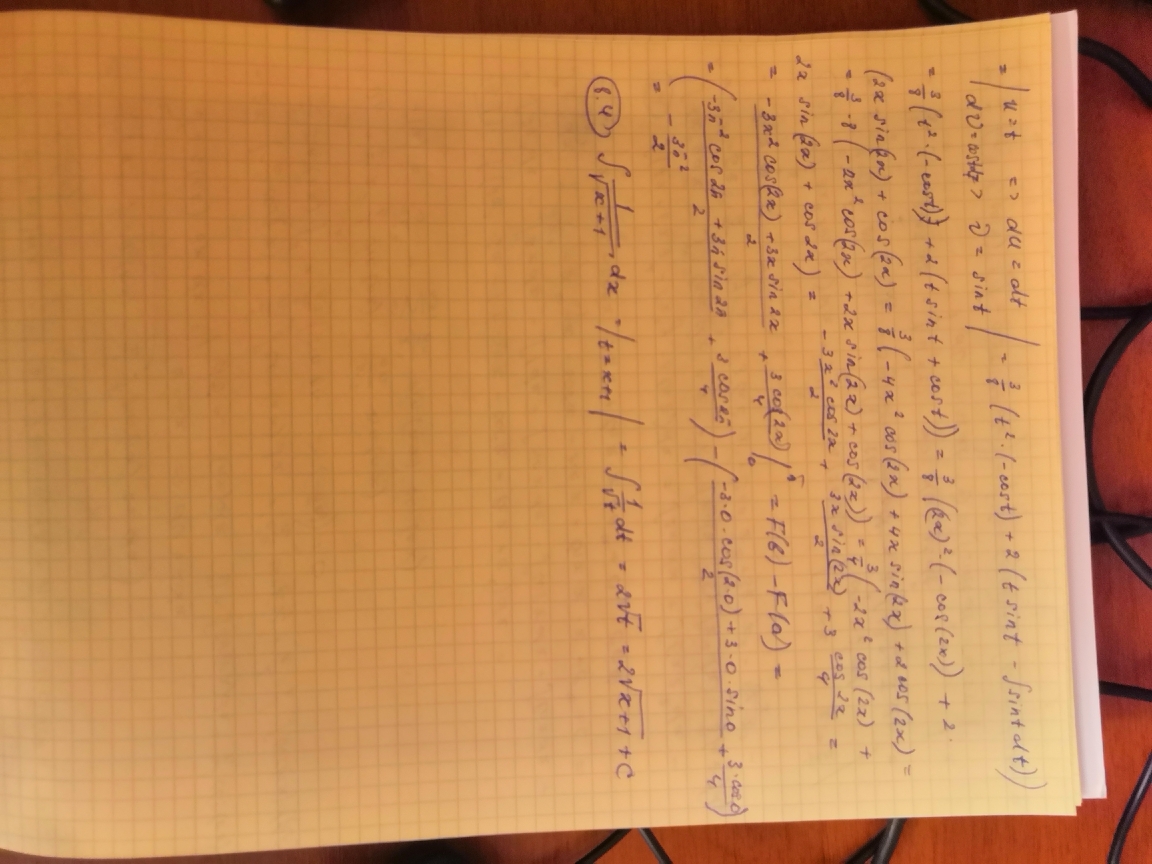 = | u = t => du = dt | = 3/8 (t² · (-cos t) + 2 (t sin t - ∫ sin t dt))
dv = cos t dt => v = sin t
= 3/8 (t² · (-cos t)) + 2 (t sin t + cos t)) = 3/8 ((2x)² · (- cos (2x)) + 2 ·
(2x sin (2x) + cos (2x) = 3/8 (-4x² cos (2x) + 4x sin (2x) + 2 cos (2x) =
= 3/8 · 8 (-2x² cos (2x) + 2x sin (2x) + cos (2x)) = 3/4 (-2x² cos (2x) +
2x sin (2x) + cos 2x) = -3x² cos 2x / 2 + 3x sin (2x) / 2 + 3 cos 2x / 4 =
= -3x² cos (2x) + 3x sin 2x / 2 + 3 cos (2x) / 4 |₀^π = F(b) - F(a) =
= (-3π² cos 2π + 3π sin 2π / 2 + 3 cos 2π / 4) - (-3·0·cos(2·0) + 3·0·sin 0 / 2 + 3·cos 0 / 4)
= - 3π² / 2
8.4) ∫ 1/√(x+1) dx = | t = x+1 | = ∫ 1/√t dt = 2√t = 2√(x+1) + C